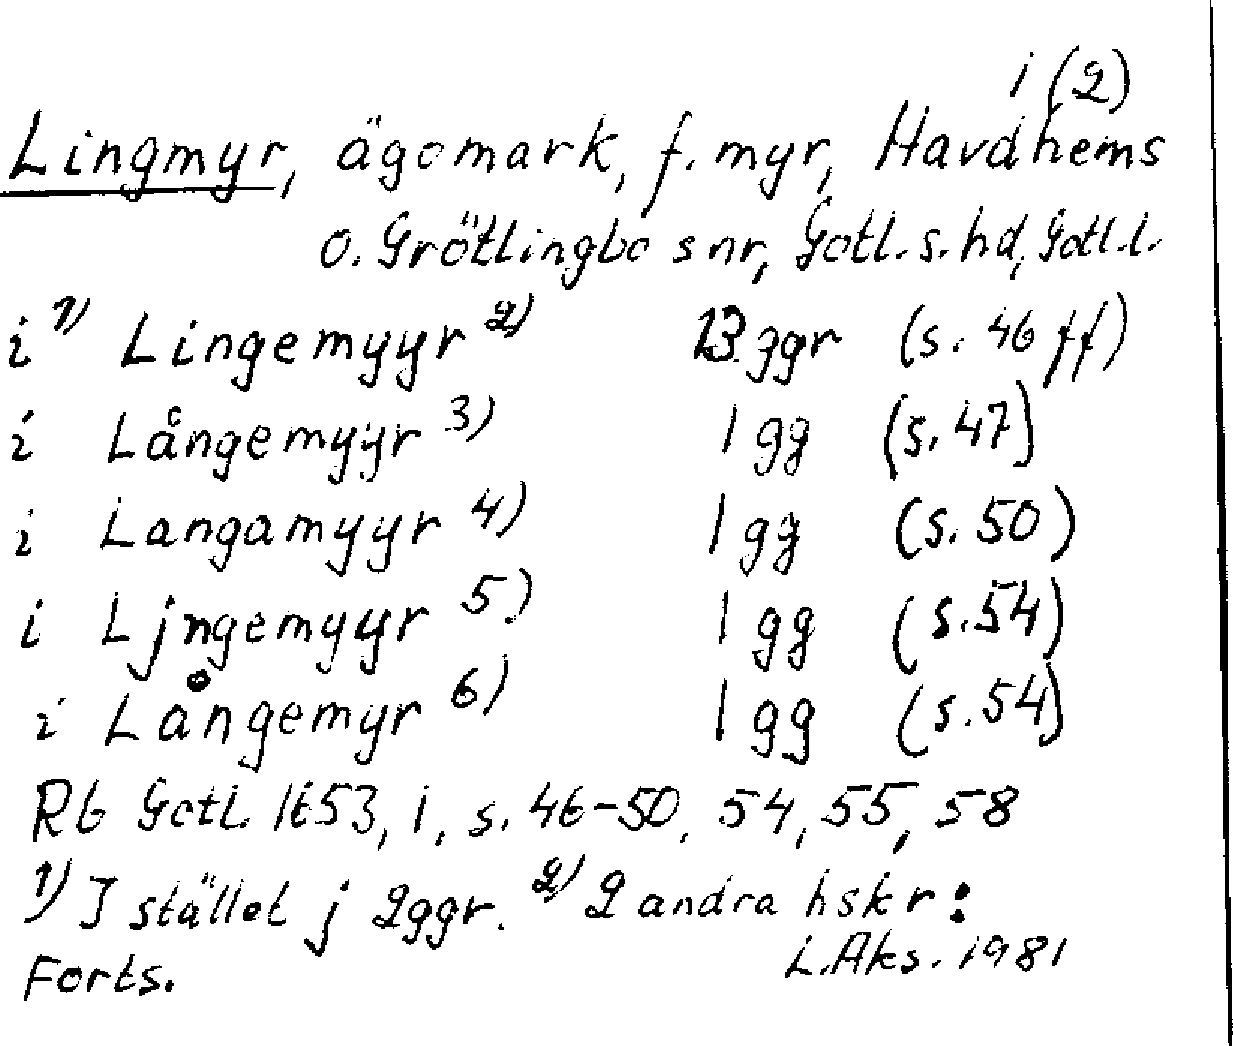 i (2)
Lingmyr, ägomark, f. myr, Havdhems
o. Grötlingbo snr, Gotl. s. hd, Gotl. l.
i 1) Lingemyyr 2) 13 ggr (s. 46 ff)
i Långemyyr 3) 1 gg (s. 47)
i Langamyyr 4) 1 gg (s. 50)
i Ljngemyyr 5) 1 gg (s. 54)
i Långemyr 6) 1 gg (s. 54)
Rb Gotl. 1653, 1, s. 46-50, 54, 55, 58
1) I stället j 2 ggr. 2) 2 andra hskr:
L. Aks. 1981
Forts.